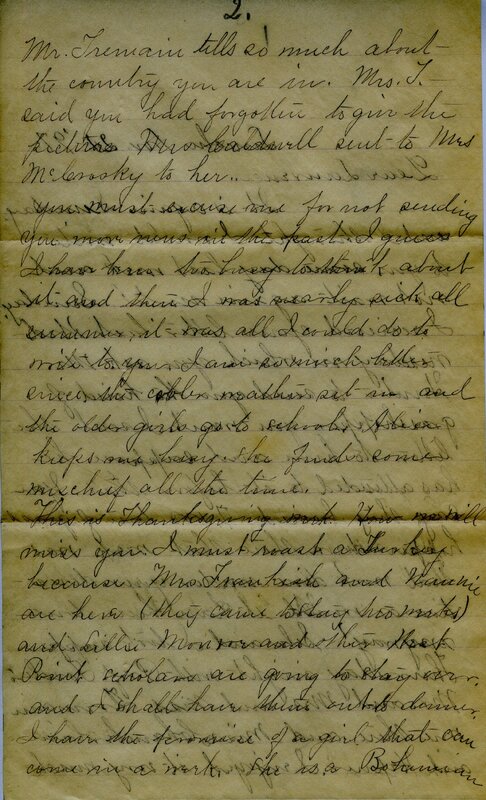 2.
Mr. Tremain tells so much about
the country you are in. Mrs. T.
said you had forgotten to give the
pictures Mrs Caldwell sent to Mrs
McCrosky to her..
you must excuse me for not sending
you more news in the past I guess
I have been too busy to think about
it and then I was nearly sick all
summer, it was all I could do to
write to you. I am so much better
since the cooler weather set in and
the older girls go to school. Alice
keeps me busy. She finds some
mischief all the time.
This is Thanksgiving week. How we will
miss you. I must roast a Turkey
because Mrs. and Nannie
are here (they came to stay two weeks)
and Lillie Monroe and other
Point scholars are going to stay over.
and I shall have them out to dinner.
I have the promise of a girl that can
come in a week. She is a Bohemian